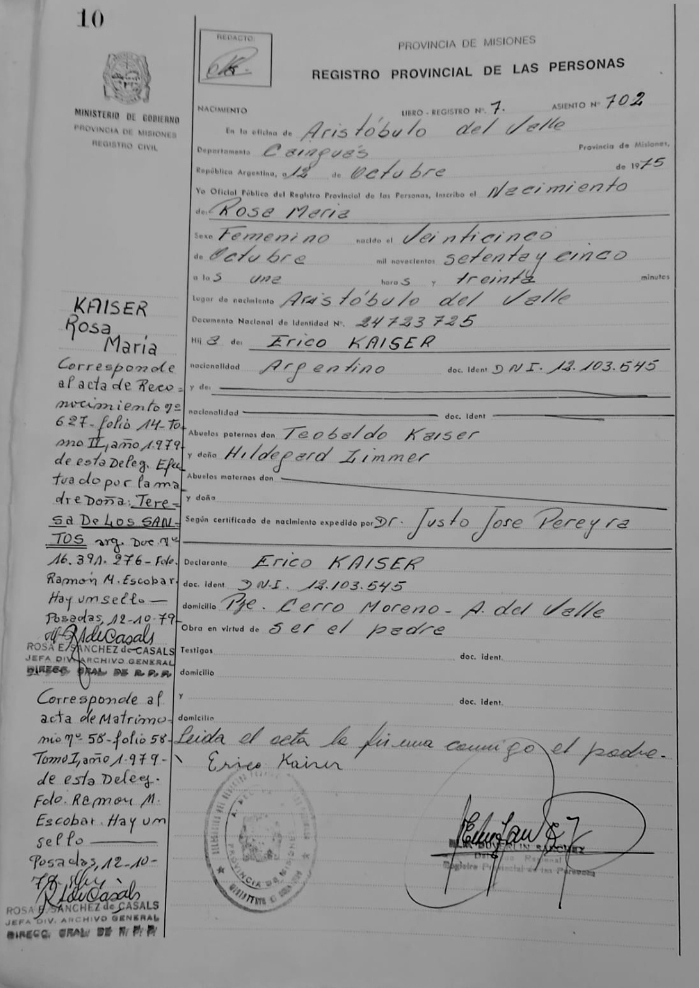 10
REDACTO:
PROVINCIA DE MISIONES
REGISTRO PROVINCIAL DE LAS PERSONAS
MINISTERIO DE GOBIERNO
PROVINCIA DE MISIONES
REGISTRO CIVIL
NACIMIENTO LIBRO - REGISTRO Nº 1. ASIENTO Nº 702
En la oficina de Aristóbulo del Valle
Departamento Cainguás Provincia de Misiones,
República Argentina, a 12 de Octubre de 1975
Yo Oficial Público del Registro Provincial de las Personas, inscribo el Nacimiento
de: Rosa Maria
Sexo Femenino nacido el Veinticinco
de Octubre mil novecientos setenta y cinco
a las una horas y treinta minutos
Lugar de nacimiento Aristóbulo del Valle
Documento Nacional de Identidad Nº. 24723725
Hija de: Erico KAISER
nacionalidad Argentino doc. Ident DNI. 12.103.545
y de:
nacionalidad doc. Ident
Abuelos paternos don Teobaldo Kaiser
y doña Hildegard Limmer
Abuelos maternos don
y doña
Según certificado de nacimiento expedido por Dr. Justo Jose Pereyra
Declarante Erico KAISER
doc. Ident DNI. 12.103.545
domicilio Pje. Cerro Moreno - A. del Valle
Obra en virtud de ser el padre
Testigos doc. Ident.
domicilio
y doc. Ident.
domicilio
Leida el acta la firma conmigo el padre.
Erico Kaiser
PROVINCIA DE MISIONES
Registro Provincial de las Personas
KAISER
Rosa
Maria
Corresponde
al acta de Reco-
nocimiento nº
627-folio 14-To-
mo II, año 1.979-
de esta Deleg. Efec
tuado por la ma
dre Doña: Tere-
sa De Los SAN-
TOS arg. Doc. nº
16.391.276-Fdo.
Ramón M. Escobar
Hay un sello—
Posadas, 12-10-79
R S de Casals
ROSA E. SANCHEZ de CASALS
JEFA DIV. ARCHIVO GENERAL
DIRECC. GRAL DE R.P.P.
Corresponde al
acta de Matrimo-
nio nº 58-folio 58-
Tomo I, año 1.979-
de esta Deleg.
Fdo. Ramon M.
Escobar. Hay um
sello
Posadas, 12-10-
79
R S de Casals
ROSA E. SANCHEZ de CASALS
JEFA DIV. ARCHIVO GENERAL
DIRECC. GRAL DE R.P.P.